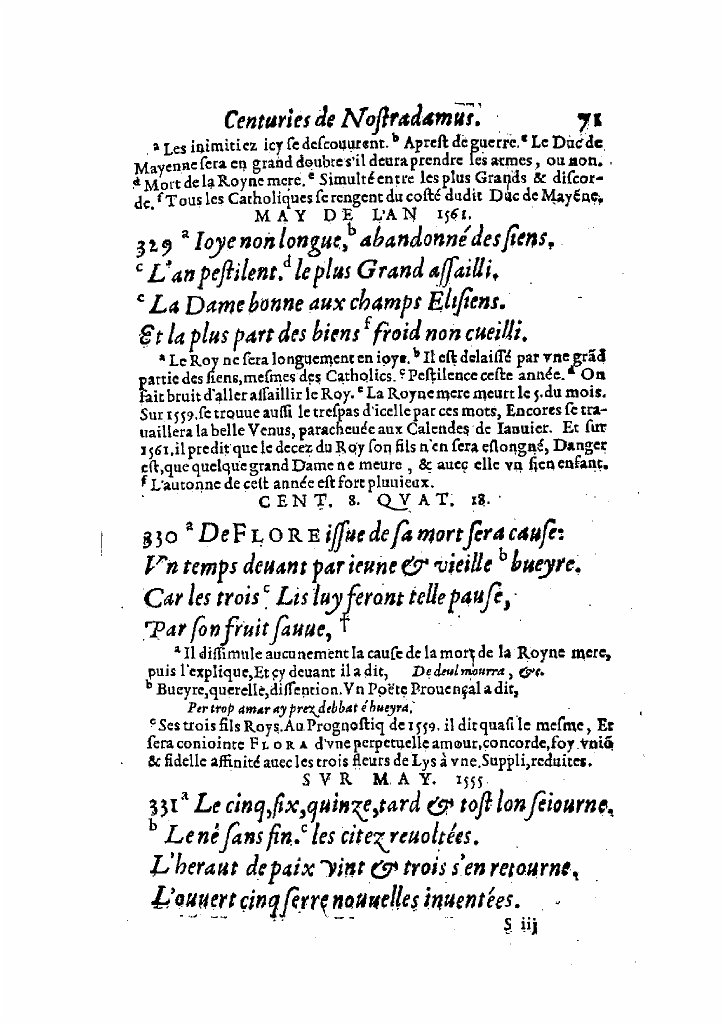 Centuries de Noſtradamus. 71
ᵃ Les inimitiez icy ſe deſcouurent. ᵇ Apreſt de guerre. ᶜ Le Duc de
Mayenne ſera en grand doubte s'il deura prendre les armes, ou non.
ᵈ Mort de la Royne mere. ᵉ Simulté entre les plus Grands & diſcor-
de. ᶠ Tous les Catholiques ſe rengent du coſté dudit Duc de Mayéne.
MAY DE L'AN 1561.
329 ᵃ Ioye non longue, ᵇ abandonné des ſiens,
ᶜ L'an peſtilent. ᵈ le plus Grand aſſailli,
ᵉ La Dame bonne aux champs Eliſiens.
Et la plus part des biens ᶠ froid non cueilli.
ᵃ Le Roy ne ſera longuement en ioye. ᵇ Il eſt delaiſſé par vne grãd
partie des ſiens, meſmes des Catholics. ᶜ Peſtilence ceſte année. ᵈ On
fait bruit d'aller aſſaillir le Roy. ᵉ La Royne mere meurt le 5. du mois.
Sur 1559. ſe trouue auſſi le treſpas d'icelle par ces mots, Encores ſe tra-
uaillera la belle Venus, paracheuée aux Calendes de Ianuier. Et ſur
1561. il predit que le decez du Roy ſon fils n'en ſera eſlongné, Danger
eſt, que quelque grand Dame ne meure, & auec elle vn ſien enfant.
ᶠ L'autonne de ceſt année eſt fort pluuieux.
CENT. 8. QVAT. 18.
330 ᵃ De FLORE iſſue de ſa mort ſera cauſe:
Vn temps deuant par ieune & vieille ᵇ bueyre.
Car les trois ᶜ Lis luy feront telle pauſe,
Par ſon fruit ſauue, †
ᵃ Il diſſimule aucunement la cauſe de la mort de la Royne mere,
puis l'explique, Et cy deuant il a dit, De deul mourra, &c.
ᵇ Bueyre, querelle, diſſention. Vn Poëte Prouençal a dit,
Per trop amar ay prez debbat é bueyra.
ᶜ Ses trois fils Roys. Au Prognoſtiq de 1559. il dit quaſi le meſme, Et
ſera coniointe FLORA d'vne perpetuelle amour, concorde, foy vniõ
& fidelle affinité auec les trois fleurs de Lys à vne. Suppli, reduites.
SVR MAY. 1555
331 ᵃ Le cinq, ſix, quinze, tard & toſt lon ſeiourne,
ᵇ Le né ſans fin. ᶜ les citez reuoltées.
L'heraut de paix vint & trois s'en retourne,
L'ouuert cinq ſerre nouuelles inuentées.
S iij